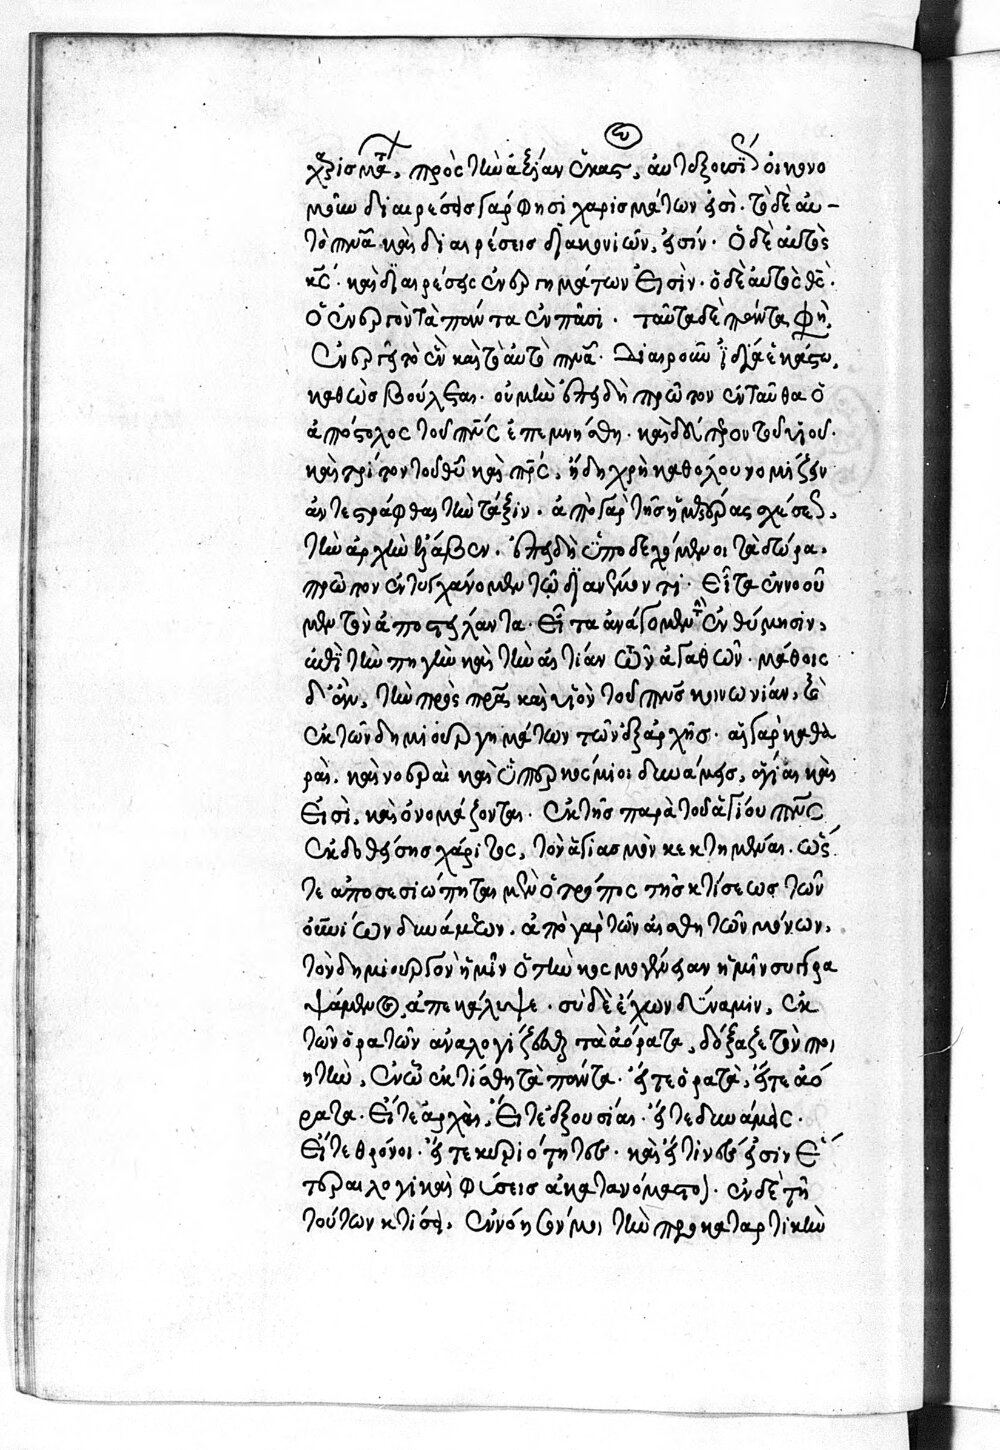 χαρίσματα, πρὸς τὴν ἀξίαν ἑκάστου, αὐτεξουσίως οἰκονο
μοῦν διαιρέσεις γάρ φησι χαρισμάτων εἰσὶ· τὸ δὲ αὐ-
τὸ πνα καὶ διαιρέσεις διακονιῶν, εἰσίν· ὁ δὲ αὐτὸς
κς· καὶ διαιρέσεις ἐνεργημάτων εἰσὶν· ὁ δὲ αὐτὸς θς·
ὁ ἐνεργῶν τὰ πάντα ἐν πᾶσι· ταῦτα δὲ πάντα φη
ἐνεργεῖ τὸ ἓν καὶ τὸ αὐτὸ πνα· διαιροῦν ἰδίᾳ ἑκάστῳ,
καθὼς βούλεται· οὐ μὴν ἐπειδὴ πρῶτον ἐνταῦθα ὁ
ἀπόστολος τοῦ πνς ἐπεμνήσθη· καὶ δεύτερον τοῦ υἱοῦ·
καὶ τρίτον τοῦ θυ καὶ πρς, ἤδη χρὴ καθόλου νομίζειν
ἀντεστράφθαι τὴν τάξιν· ἀπὸ γὰρ τῆς ἡμετέρας σχέσεως,
τὴν ἀρχὴν ἔλαβεν· ἐπειδὴ ὑποδεχόμενοι τὰ δῶρα,
πρῶτον ἐντυγχάνομεν τῷ διανέμοντι· εἶτα ἐννοοῦ
μεν τὸν ἀποστείλαντα· εἶτα ἀνάγομεν τὴν ἐνθύμησιν,
ἐπὶ τὴν πηγὴν καὶ τὴν αἰτίαν τῶν ἀγαθῶν· μάθοις
δ' ἂν, τὴν πρὸς πρα καὶ υἱὸν τοῦ πνς κοινωνίαν, καὶ
ἐκ τῶν δημιουργημάτων τῶν ἐξ ἀρχῆς· αἱ γὰρ καθα
ραὶ, καὶ νοεραὶ καὶ ὑπερκόσμιοι δυνάμεις, ἅγιαι καὶ
εἰσὶ, καὶ ὀνομάζονται· ἐκ τῆς παρὰ τοῦ ἁγίου πνς
ἐκδοθείσης χάριτος, τὸν ἁγιασμὸν κεκτημέναι· ὥσ
τε ἀποσεσιώπηται μὲν ὁ τρόπος τῆς κτίσεως τῶν
οὐνίων δυνάμεων· ἀπὸ γὰρ τῶν αἰσθητῶν μόνων,
τὸν δημιουργὸν ἡμῖν ὁ τὴν κοσμογένειαν ἡμῖν συγγρα
ψάμενος, ἀπεκάλυψε· σὺ δὲ ἔχων δύναμιν, ἐκ
τῶν ὁρατῶν ἀναλογίζεσθαι τὰ ἀόρατα, δόξαζε τὸν ποι
ητὴν, ἐν ᾧ ἐκτίσθη τὰ πάντα· εἴτε ὁρατὰ, εἴτε ἀό
ρατα· εἴτε ἀρχαὶ, εἴτε ἐξουσίαι· εἴτε δυνάμεις·
εἴτε θρόνοι· εἴτε κυριότητες· καὶ εἴ τινες εἰσὶν ἕ
τεραι λογικαὶ φύσεις ἀκατανόμαστοι· ἐν δὲ τῇ
τούτων κτίσει, ἐννόησόν μοι τὴν προκαταρτικὴν